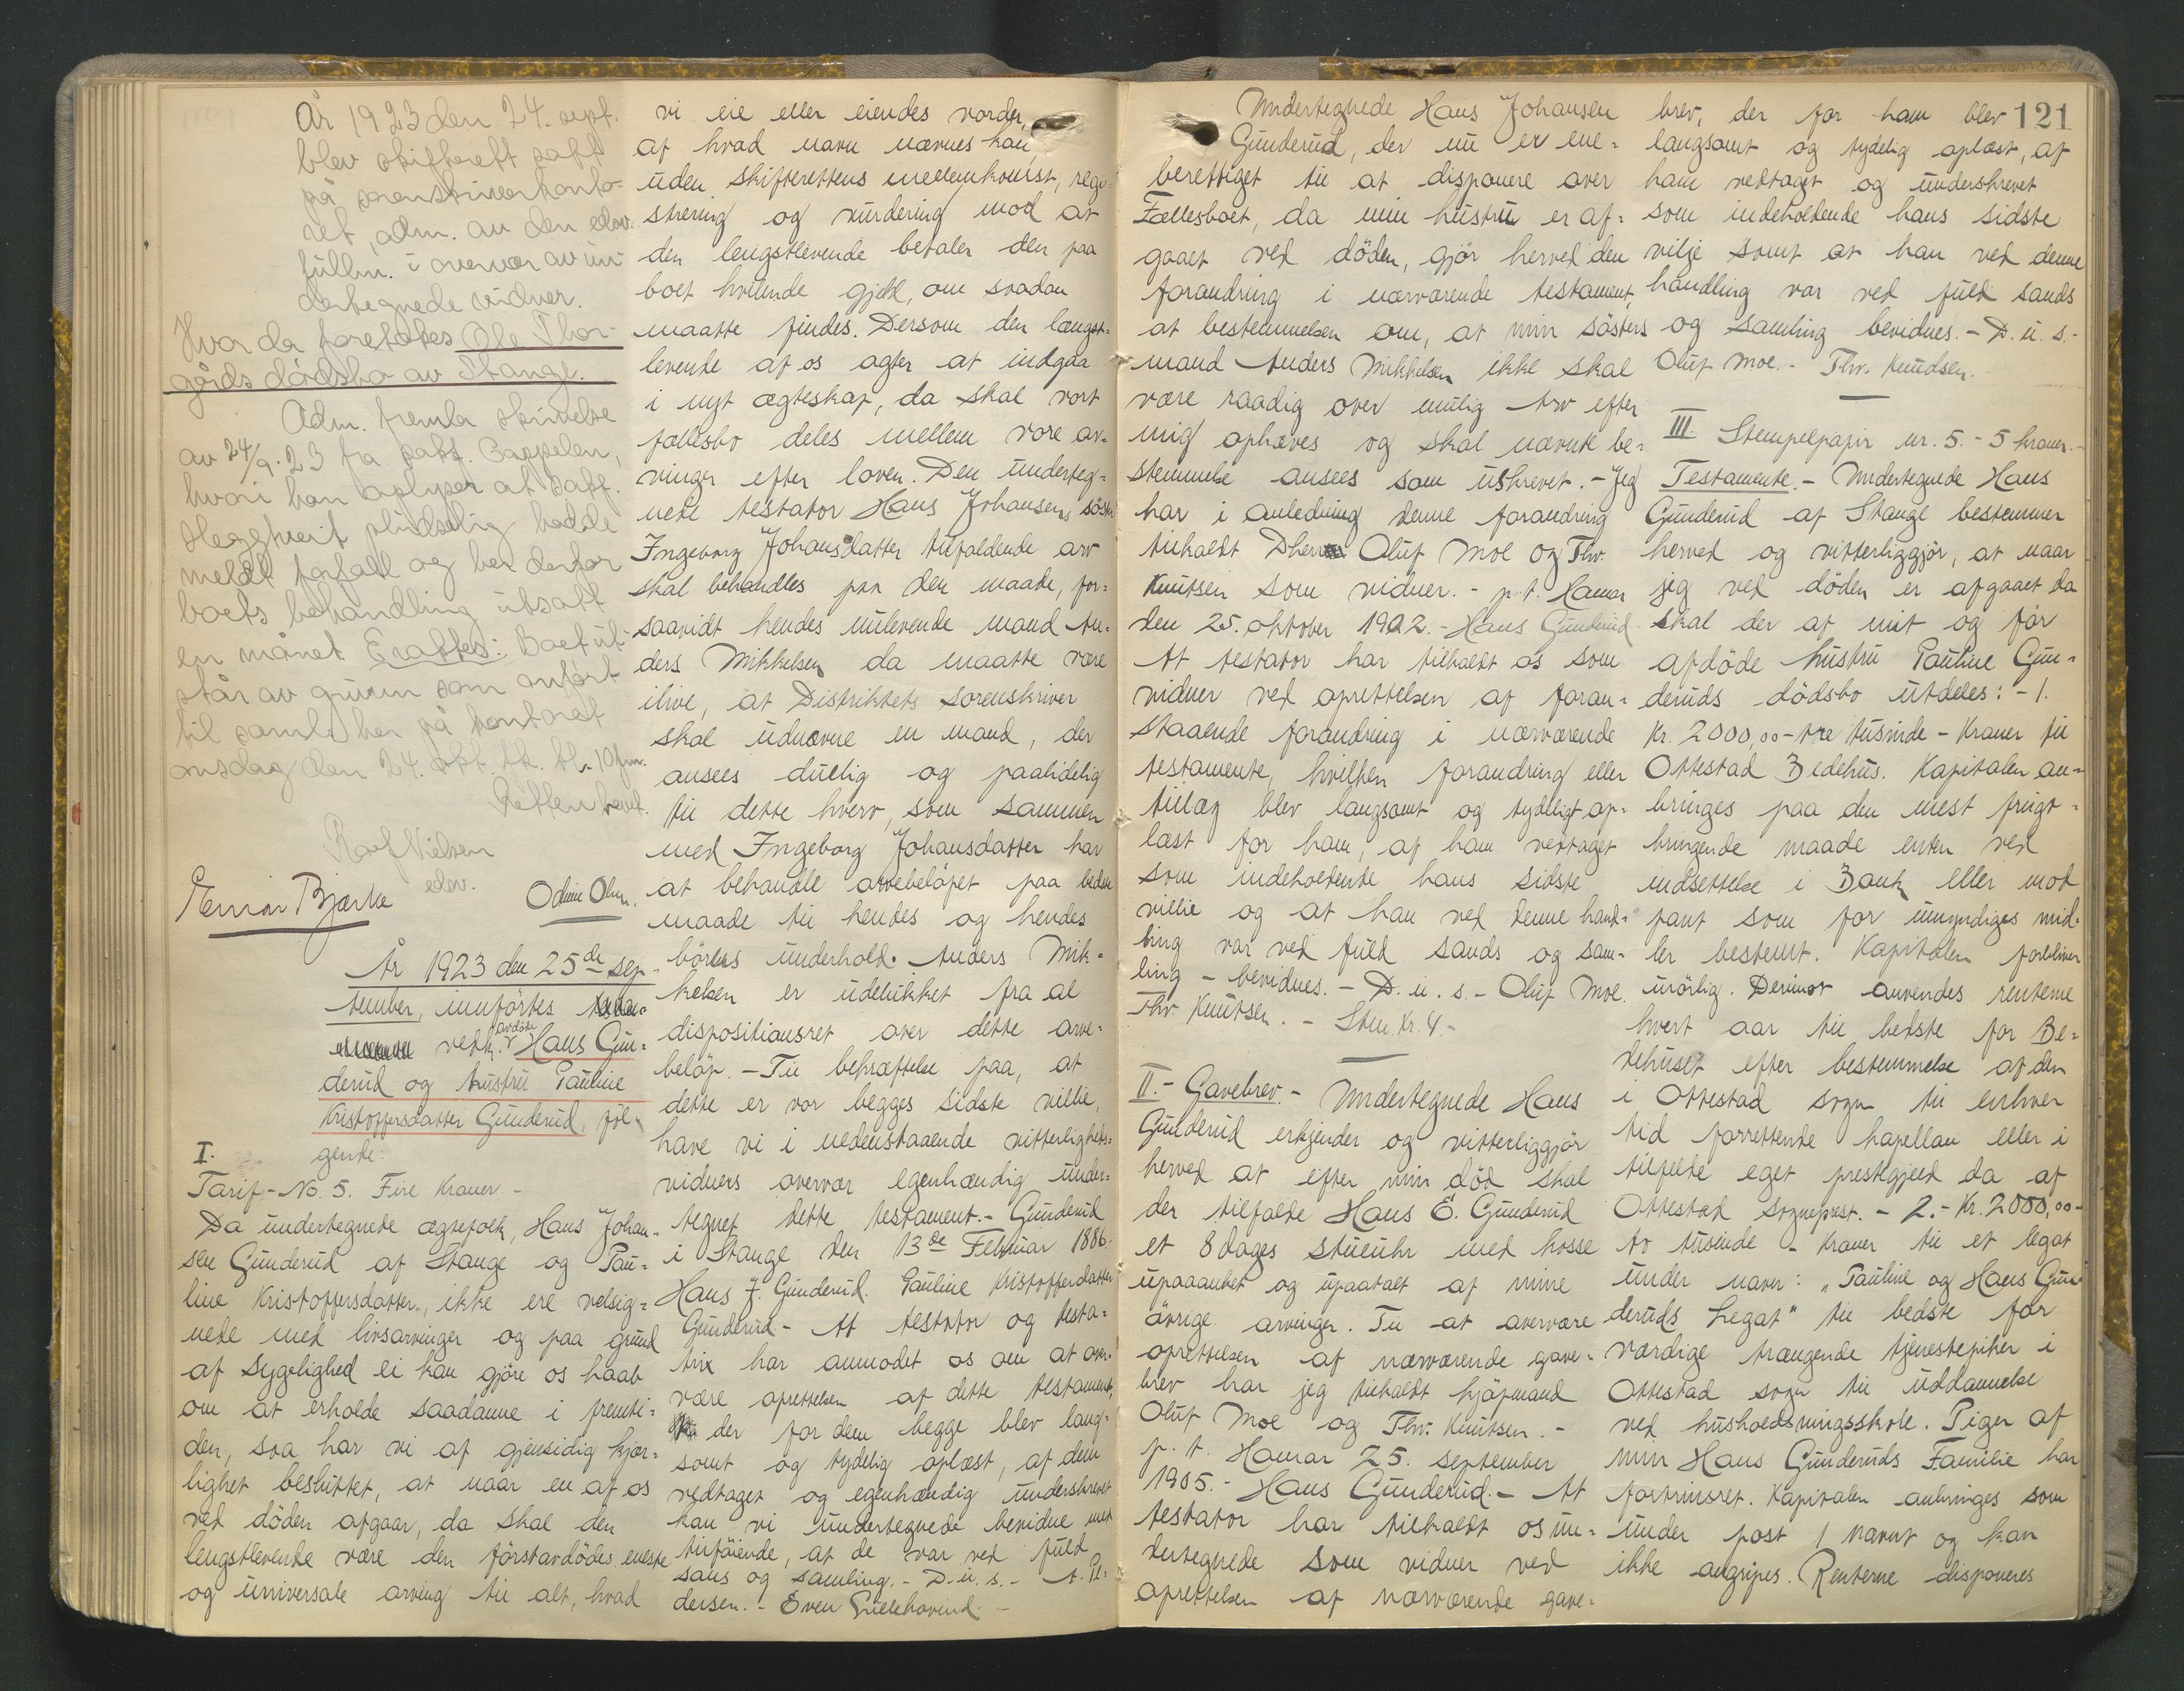 År 1923 den 24. sept.
blev skifterett satt
på sorenskriverkonto-
ret, adm. av den edsv.
fullm. i overvær av un-
dertegnede vidner.
Hvor da foretokes Ole Thor-
gårds dödsbo av Stange.
Adm. fremla skrivelse
av 24/9.23 fra saksf. Cappelen,
hvori han oplyser at saksf.
Heggtveit plutselig hadde
meldt forfall og ber derfor
boets behandling utsatt
en månet. Erattes: Boet ut-
står av grunn som anfört
til saml. her på kontoret
onsdag den 24. okt. kl. 10 fm.
Retten hevet.
Rolf Nielsen
edsv.
Einar Bjerke
Odin Olsen.
År 1923 den 25de sep-
tember, innförtes
vedk. avdöde Hans Gun-
derud og hustru Pauline
Kristoffersdatter Gunderud, föl-
gende:
I.
Tarif.- No. 5. Fire Kroner.-
Da undertegnede ægtefolk, Hans Johan-
sen Gunderud af Stange og Pau-
line Kristoffersdatter, ikke ere velsig-
nede med livsarvinger og paa grund
af Sygelighed ei kan gjöre os haab
om at erholde saadanne i fremti-
den, saa har vi af gjensidig kjær-
lighet besluttet, at naar en af os
ved döden afgaar, da skal den
lengstlevende være den förstavdödes eneste
og universale arving til alt, hvad
vi eie eller eiendes vorder,
af hvad navn nævnes kan,
uden skifterettens mellemkomst, regi-
strering og vurdering mod at
den lengstlevende betaler den paa
boet hvilende gjeld, om saadan
maatte findes. Dersom den længst-
levende af os agter at indgaa
i nyt ægteskap, da skal vort
fællesbo deles mellem vore ar-
vinger efter loven. Den underteg-
nede testator Hans Johansens söster
Ingeborg Johansdatter tilfaldende arv
skal behandles paa den maade, for-
saavidt hendes nulevende mand An-
ders Mikkelsen da maatte være
ilive, at Distriktets sorenskriver
skal udnævne en mand, der
ansees duelig og paalidelig
til dette hverv, som sammen
med Ingeborg Johansdatter har
at behandle arvebelöpet paa bedste
maade til hendes og hendes
börns underhold. Anders Mik-
kelsen er udelukket fra al
dispositionsret over dette arve-
belöp. - Til bekræftelse paa, at
dette er vor begges sidste villie,
have vi i nedenstaaende vitterligheds-
vidners overvær egenhændig under-
tegnet dette testament.- Gunderud
i Stange den 13de Februar 1886.
Hans J. Gunderud. Pauline Kristoffersdatter
Gunderud.- At testator og testa-
trix har anmodet os om at over-
være oprettelsen af dette testament,
der for dem begge blev lang-
somt og tydelig oplæst, af dem
vedtaget og egenhændig underskrevet
kan vi undertegnede bevidne med
tilföiende, at de var ved fuld
sans og samling.- D.u.s.- A. Pe-
dersen.- Even Gillehovend.-
121
Undertegnede Hans Johansen
Gunderud, der nu er ene-
berettiget til at disponere over
Fællesboet, da min hustru er af-
gaaet ved döden, gjör herved den
forandring i nærværende testament,
at bestemmelsen om, at min sösters
mand Anders Mikkelsen ikke skal
være raadig over mulig Arv efter
mig ophæves og skal nævnte be-
stemmelse ansees som uskrevet.- Jeg
har i anledning denne forandring
tilkaldt Dherrer Oluf Moe og Thv.
Knutsen som vidner.- p.t. Hamar
den 25. oktober 1902.- Hans Gunderud
At testator har tilkaldt os som
vidner ved oprettelsen af foran-
staaende forandring i nærværende
testamente, hvilken forandring eller
tillæg blev langsomt og tydeligt op-
læst for ham, af ham vedtaget
som indeholdende hans sidste
villie og at han ved denne hand-
ling var ved fuld sands og sam-
ling - bevidnes. - D.u.s.- Oluf Moe.
Thv. Knutsen. - Stm. Kr. 4.-
II.- Gavebrev.- Undertegnede Hans
Gunderud erkjender og vitterliggjör
herved at efter min död skal
der tilfalde Hans E. Gunderud
et 8 dages stueuhr med kasse
upaaanket og upaatalt af mine
övrige arvinger. Til at overvære
oprettelsen af nærværende gave-
brev har jeg tilkaldt kjöpmand
Oluf Moe og Thv. Knutsen.-
p.t. Hamar 25. september
1905.- Hans Gunderud.- At
testator har tilkaldt os un-
dertegnede som vidner ved
oprettelsen af nærværende gave-
brev, der for ham blev
langsomt og tydelig oplæst, af
ham vedtaget og underskrevet
som indeholdende hans sidste
vilje samt at han ved denne
handling var ved fuld sands
og samling bevidnes.- D.u.s.-
Oluf Moe.- Thv. Knudsen.-
III. Stempelpapir nr. 5.- 5 kroner.-
Testamente.- Undertegnede Hans
Gunderud af Stange bestemmer
herved og vitterliggjör, at naar
jeg ved döden er afgaaet da
skal der af mit og før
afdöde hustru Pauline Gun-
deruds dödsbo utdeles:- 1.
Kr. 2000,00 - tre tusinde - Kroner til
Ottestad Bedehus. Kapitalen an-
bringes paa den mest frugt-
bringende maade enten ved
indsettelse i Bank eller mod
pant som for umyndiges mid-
ler bestemt. Kapitalen forbliver
urörlig. Derimot anvendes renterne
hvert aar til bedste for Be-
dehuset efter bestemmelse af den
i Ottestad sogn til enhver
tid forrettende kapellan eller i
tilfælde eget prestegjeld da af
Ottestad sogneprest. - 2.- Kr. 2000,00-
to tusinde - Kroner til et legat
under navn: "Pauline og Hans Gun-
deruds Legat" til bedste for
værdige trængende tjenestepiker i
Ottestad sogn til uddannelse
ved husholdningsskole. Piger af
min Hans Gunderuds Familie har
fortrinsret. Kapitalen anbringes som
under post 1 nævnt og kan
ikke angripes. Renterne disponeres